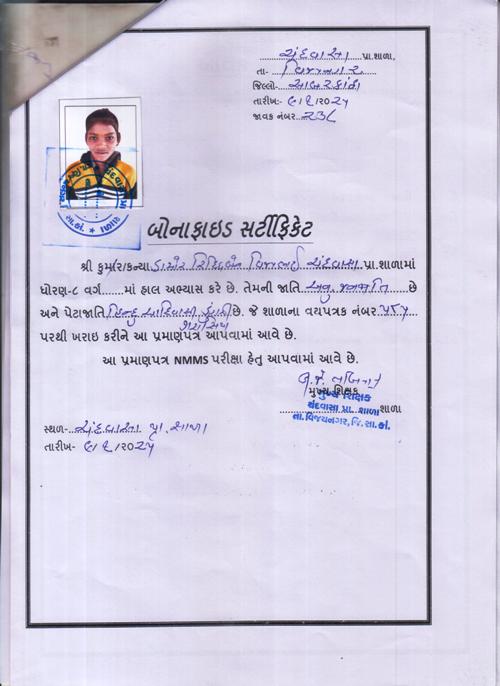 ચંદવાસા પ્રા.શાળા,
તા- વિજયનગર
જિલ્લો- સાબરકાંઠા
તારીખ-
જાવક નંબર
બોનાફાઇડ સર્ટીફિકેટ
શ્રી કુમાર/કન્યા ડામોર ચંદવાસા પ્રા.શાળામાં
ધોરણ-૮ વર્ગ.......માં હાલ અભ્યાસ કરે છે. તેમની જાતિ અનુ. જનજાતિ છે
અને પેટાજાતિ હિન્દુ આદિવાસી ડુંગરી છે. જે શાળાના વયપત્રક નંબર
ગરાસિયા
પરથી ખરાઇ કરીને આ પ્રમાણપત્ર આપવામાં આવે છે.
આ પ્રમાણપત્ર NMMS પરીક્ષા હેતુ આપવામાં આવે છે.
મુખ્ય શિક્ષક
મુખ્ય શિક્ષક
ચંદવાસા પ્રા. શાળા શાળા
તા.વિજયનગર, જિ.સા.કાં.
સ્થળ- ચંદવાસા પ્રા. શાળા
તારીખ-